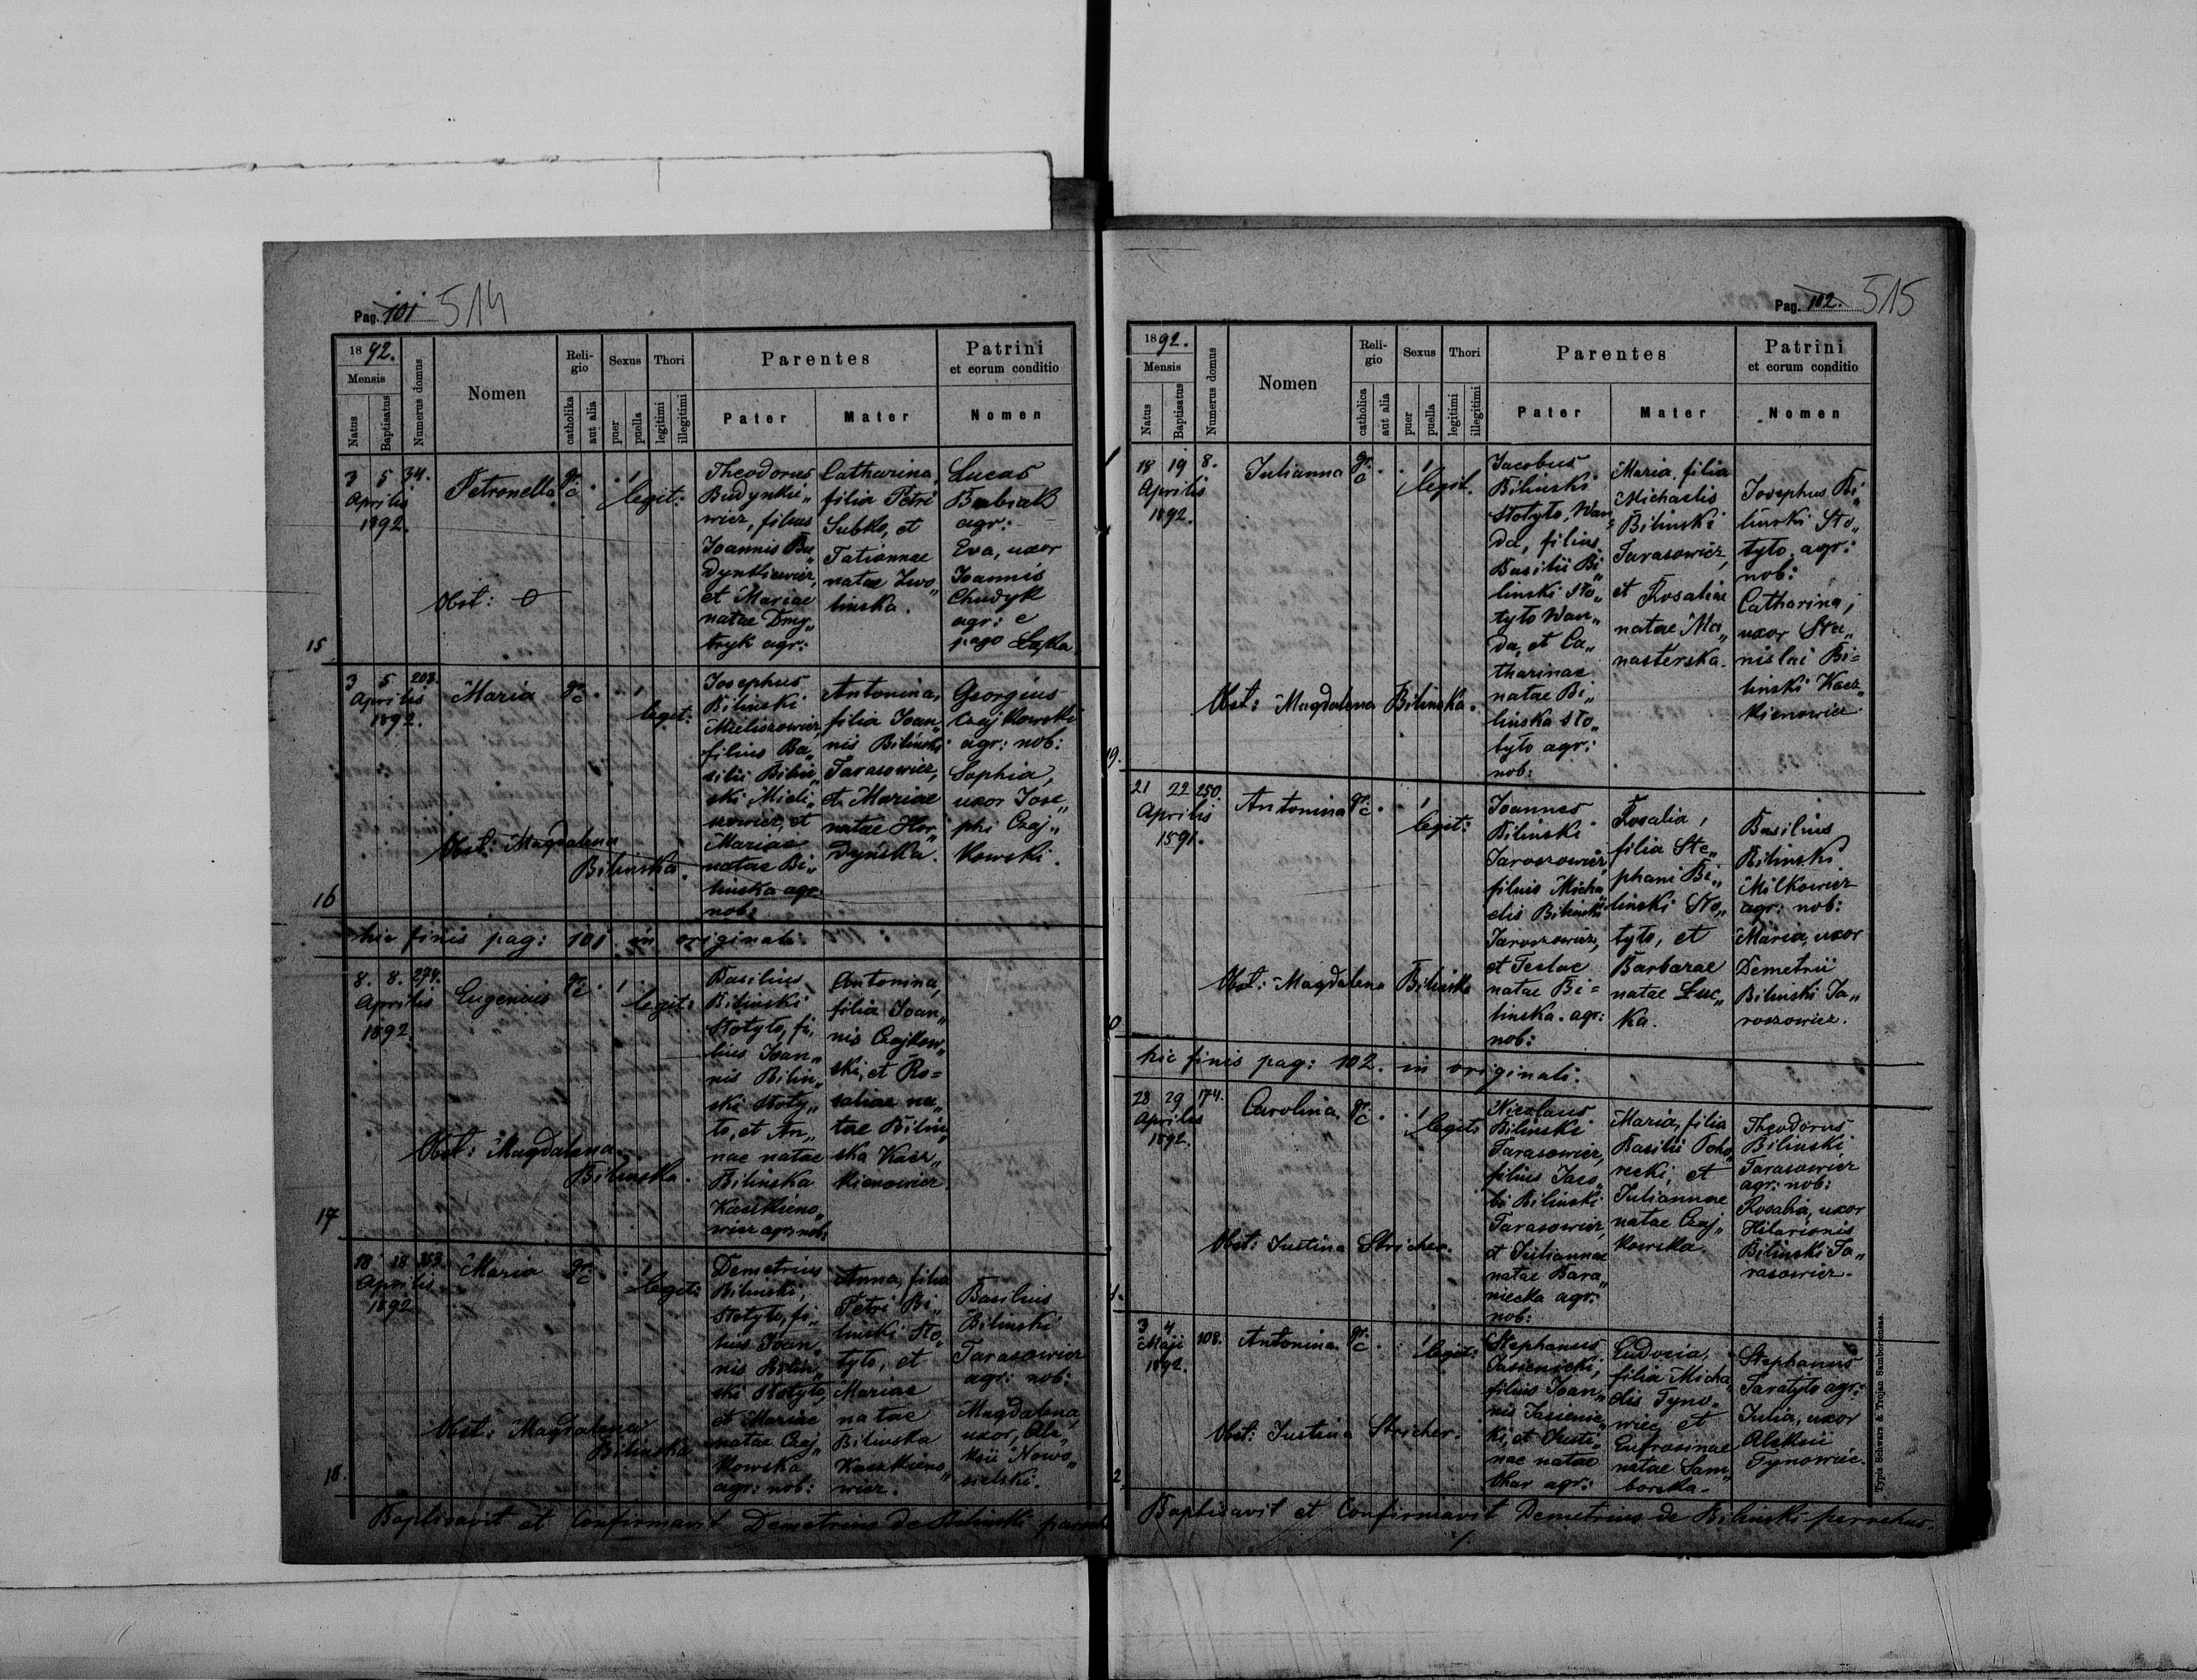 Pag. 101 514
1892.
Mensis
Natus
Baptisatus
Numerus domus
Nomen
Reli-
gio
catholika
aut alia
Sexus
puer
puella
Thori
legitimi
illegitimi
Parentes
Pater
Mater
Patrini
et eorum conditio
Nomen
15
3 5 34.
Aprilis
1892.
Petronella
gr.
c
1
legit:
Obst: O
Theodorus
Budynkie„
wicz, filius
Joannis Bu„
dynkiewicz,
et Mariae
natae Dmy„
tryk agr:
Catharina,
filia Petri
Subko, et
Tatiannae
natae Zwo„
linska.
Lucas
Babiak
agr:
Eva, uxor
Joannis
Chudyk
agr: e
pago Łąka
16
3 5 208.
Aprilis
1892.
Maria
gr.
c
1
legit:
Obst: Magdalena
Bilinska.
Josephus
Bilinski
Mieliszowicz,
filius Ba„
silii Bilin„
ski Mieli„
szowicz, et
Mariae
natae Bi„
linska agr:
nob:
Antonina,
filia Joan„
nis Bilinski
Tarasowicz,
et Mariae
natae Hor„
dynska.
Georgius
Czajkowski
agr: nob:
Sophia,
uxor Jose„
phi Czaj„
kowski.
hic finis pag: 101. in originali.
17
8. 8. 274.
Aprilis
1892.
Eugenius
gr.
c.
1
legit:
Obst: Magdalena
Bilinska.
Basilius
Bilinski
Stotyto, fi„
lius Joan„
nis Bilin„
ski Stoty„
to, et An„
nae natae
Bilinska
Kaczkieno„
wicz agr: nob:
Antonina,
filia Joan„
nis Czajkow„
ski, et Ro=
saliae na„
tae Bilin„
ska Kacz„
kienowicz.
18.
18 18 353.
Aprilis
1892
Maria
gr.
c
1
legit:
Obst: Magdalena
Bilinska
Demetrius
Bilinski,
Stotyto, fi„
lius Joan„
nis Bilin„
ski Stotyto,
et Mariae
natae Czaj„
kowska
agr: nob:
Anna, filia
Petri Bi„
linski Sto„
tyto, et
Mariae
natae
Bilinska
Kaczkieno„
wicz.
Basilius
Bilinski
Tarasowicz
agr: nob:
Magdalena,
uxor, Ale„
ksii Nowo„
sielski.
Baptisavit et Confirmavit Demetrius de Bilinski
Pag. 102. 515
1892.
Mensis
Natus
Baptisatus
Numerus domus
Nomen
Reli-
gio
catholica
aut alia
Sexus
puer
puella
Thori
legitimi
illegitimi
Parentes
Pater
Mater
Patrini
et eorum conditio
Nomen
9.
18 19 8.
Aprilis
1892.
Julianna
gr.
c
1
legit.
Obst: Magdalena Bilinska.
Jacobus
Bilinski
Stotyto, Wan„
da, filius
Basilii Bi„
linski Sto„
tyto Wan„
da, et Ca„
tharinae
natae Bi„
linska Sto„
tyto agr:
nob:
Maria, filia
Michaelis
Bilinski
Tarasowicz,
et Rosaliae
natae Ma„
nasterska.
Josephus Bi„
linski Sto„
tyto, agr:
nob:
Catharina,
uxor Sta„
nislai Bi=
linski Kacz„
kienowicz
0
21 22 250.
Aprilis
1891.
Antonina
gr.
c
1
legit:
Obst: Magdalena Bilinska
Joannes
Bilinski
Jaroszowicz,
filius Micha„
elis Bilinski
Jaroszowicz,
et Teclae
natae Bi=
linska. agr:
nob:
Rosalia,
filia Ste„
phani Bi„
linski Sto„
tyto, et
Barbarae
natae Łuc„
ka.
Basilius
Bilinski
Milkowicz
agr: nob:
Maria, uxor
Demetrii
Bilinski Ja„
roszowicz.
hic finis pag: 102. in originali.
1.
28 29 174.
Aprilis
1892.
Carolina
gr.
c
1
legit:
Obst: Justina Stricher.
Nicolaus
Bilinski
Tarasowicz,
filius Jaco„
bi Bilinski
Tarasowicz,
et Juliannae
natae Bara„
niecka agr:
nob:
Maria, filia
Basilii Poho„
recki, et
Juliannae
natae Czaj„
kowska.
Theodorus
Bilinski,
Tarasowicz
agr: nob:
Rosalia, uxor
Hilarionis
Bilinski Ta„
rasowicz.
2.
3 4 108.
Maji
1892.
Antonina
gr.
c
1
legit:
Obst: Justina Stricher.
Stephanus
Jasienicki,
filius Joan„
nis Jasienic„
ki, et Justi„
nae natae
agr:
Eudocia,
filia Micha„
elis Tyno„
wiec et
Eufrosinae
natae Sam„
borska.
Stephanus
Taratyto agr:
Julia, uxor
Aleksii
Tynowiec.
Baptisavit et Confirmavit Demetrius de Bilinski parochus.
Typis Schwarz & Trojan Samborienses.